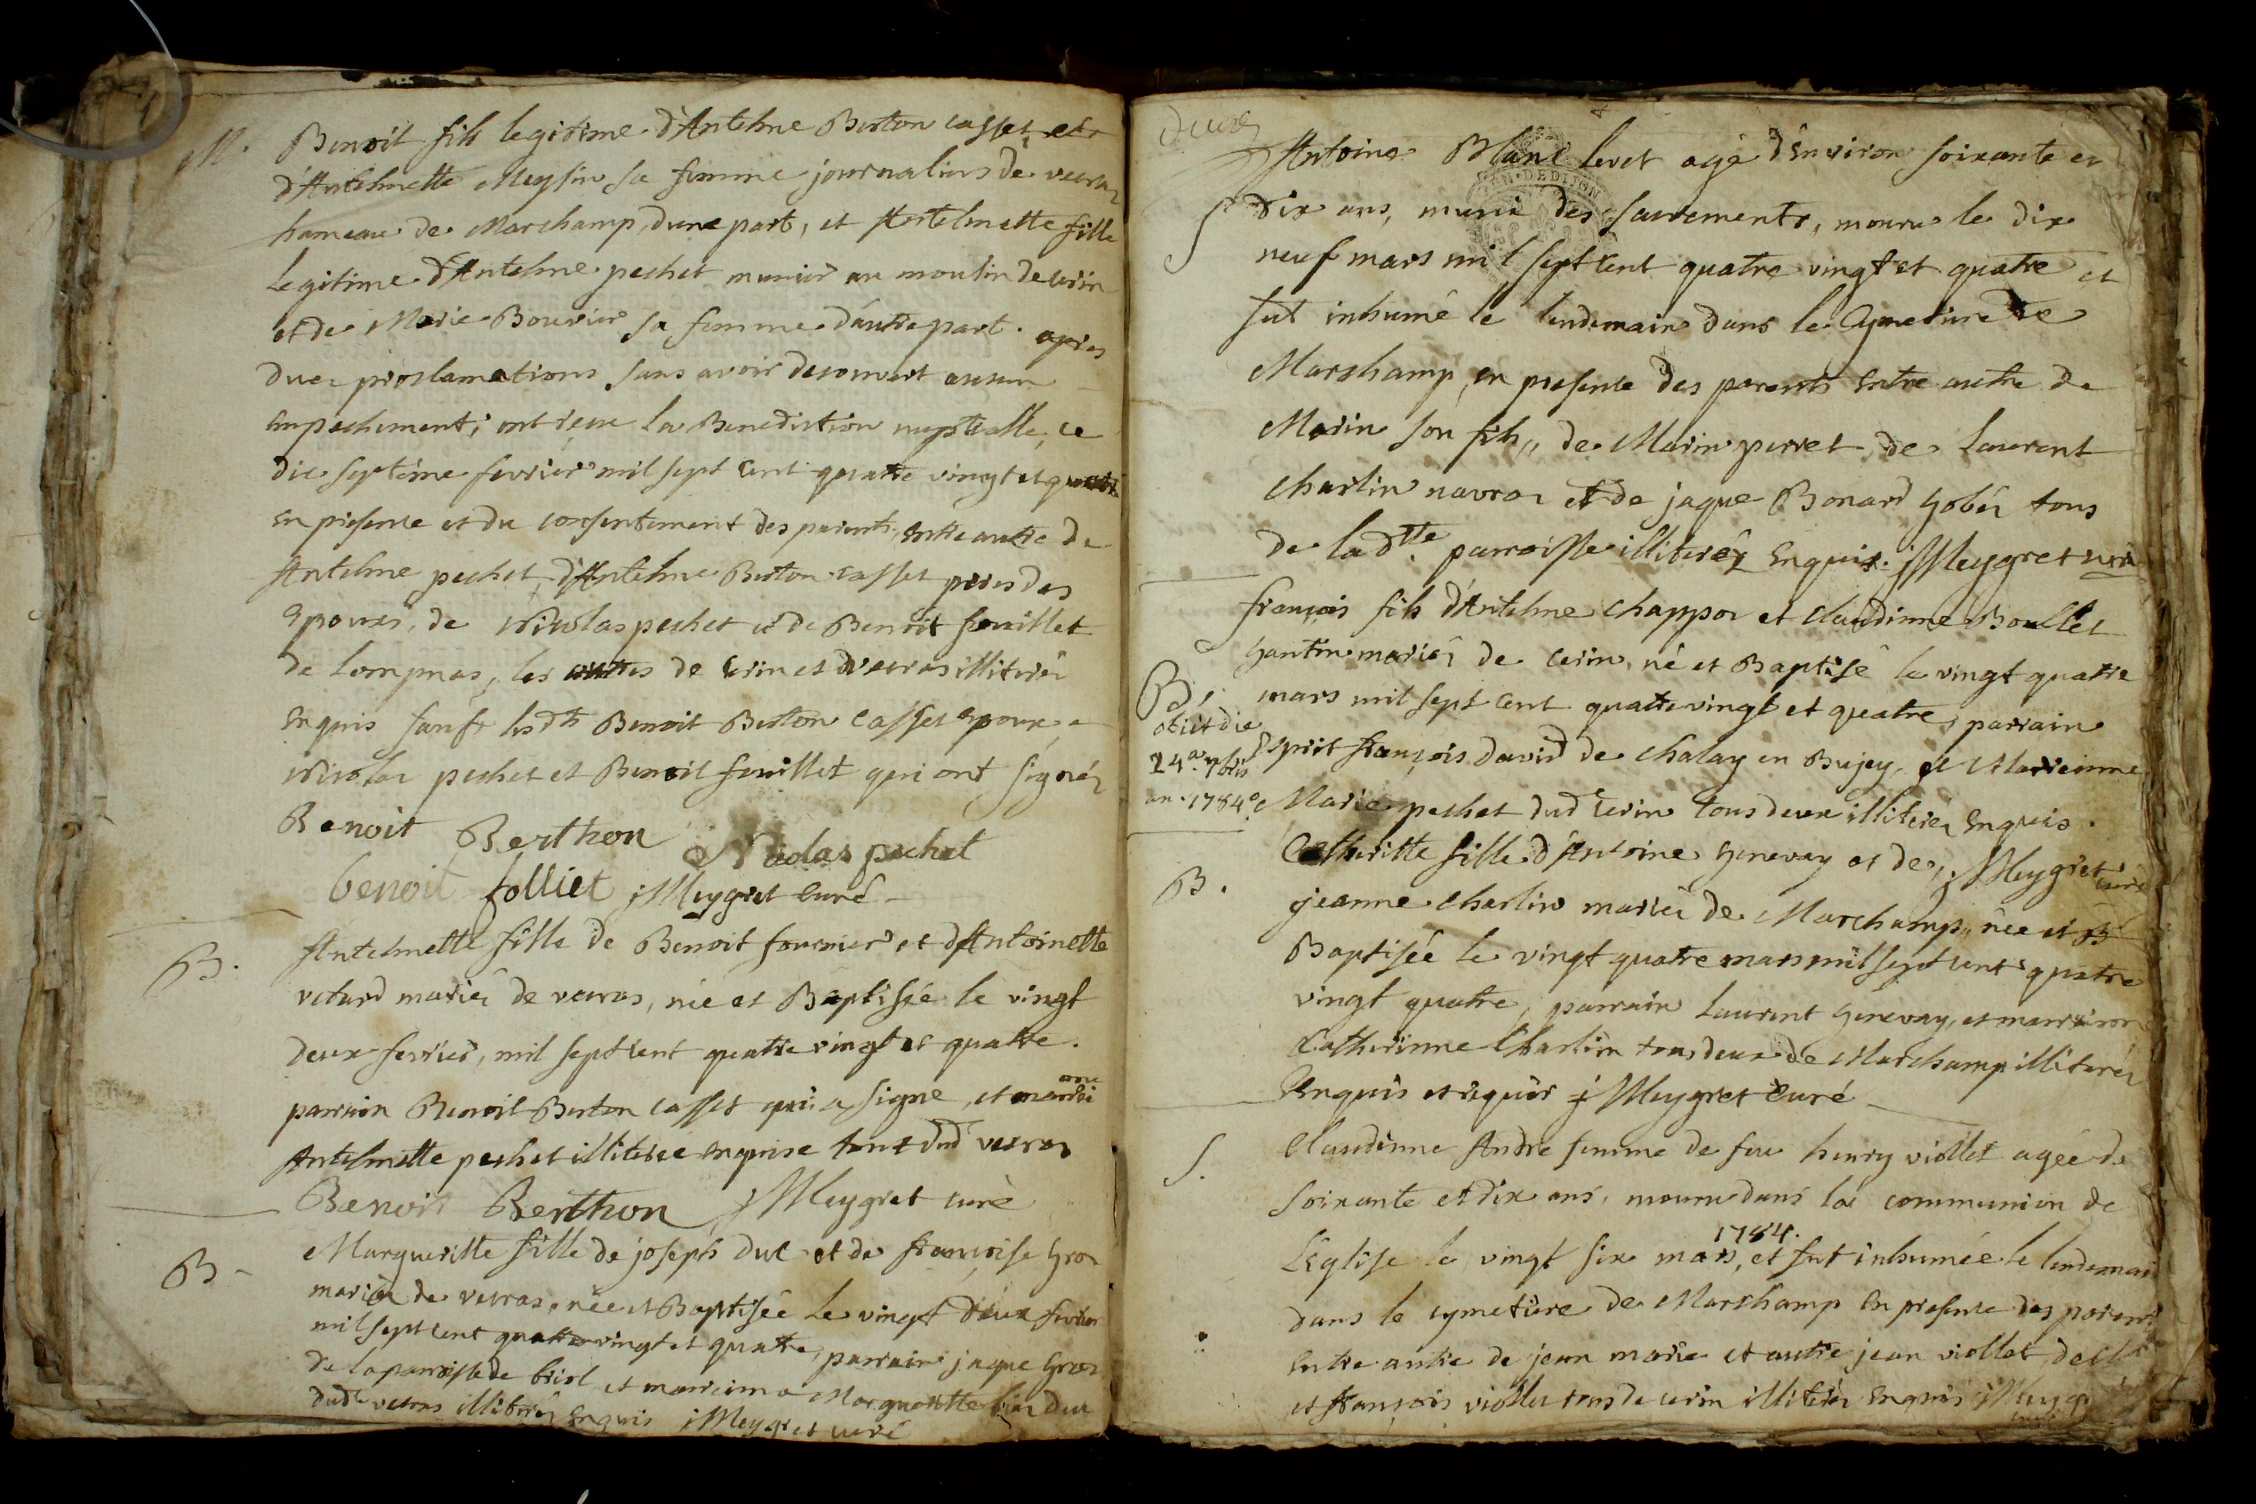 M.
Benoit fils legitime d'Antelme Berton Casset et
d'Antelmette Meysin sa femme journaliers de vecras
hameau de Marchamp, d'une part, et Antelmette fille
Legitime d'Antelme pechet munier au moulin de cerin
et de Marie Bouvier sa femme d'autre part. apres
deux proclamations sans avoir decouvert aucun
empechement, ont reçu la Benediction nuptialle, ce
dix septiéme fevrier mil sept cent quatre vingt et quatre
en presence et du consentement des parents, entre autre de
Antelme pechet, d'Antelme Berton Casset peres des
Epoux, de Nicolas pechet et de Benoit fouillet
de Lompnas, les autres de Cerin et vecras illiterés
Enquis sauf lesdts Benoit Berton Casset epoux,
Nicolas pechet et Benoit fouillet qui ont signés
Benoit Berthon Nicolas pechet
benoit folliet j Meygret curé
B.
Antelmette fille de Benoit fournier et d'Antoinette
vetard mariés de vecras, née et Baptisée le vingt
deux fevrier, mil sept cent quatre vingt et quatre.
parrain Benoit Berton Casset qui a signé, et marr
Antelmette pechet illiterée enquise tous dud vecras
Benoit Berthon j Meygret curé
B.
Margueritte fille de joseph duc et de françoise Gros
mariés de vecras, née et Baptisée Le vingt deux fevrier
mil sept cent quatre vingt et quatre, parrain jaque Gros
de la parroisse de briol et marreinne Margueritte duc
dudt vecras illiterés enquis j Meygret curé
deux
S
Antoine Blanc Levet agé d'Environ soixante et
dix ans, muni des sacrements, mouru le dix
neuf mars mil sept cent quatre vingt et quatre et
fut inhumé le lendemain dans le Cymetiere de
Marchamp, en presence des parents entre autre de
Marin son fils, de Marin perret, de Laurent
Charlin navros et de jaque Bonard Gobés tous
de ladtte parroisse illiterés Enquis. j Meygret curé
B.
obiit die
24a 7bris
an. 1784o
françois fils d'Antelme Chappoz et Claudinne Boullet
Gantin mariés de cerin, né et Baptisé le vingt quatre
mars mil sept cent quatre vingt et quatre, parrain
Esprit françois david de Chalay en Bujey, et Marreinne
Marie pechet dudt Cerin tous deux illiterés Enquis.
j Meygret curé
B.
Catheritte fille d'Antoine Genevay et de
jeanne Charlin mariés de Marchamp, née et B
Baptisée le vingt quatre mars mil sept cent quatre
vingt quatre, parrain Laurent Genevay, et marreinne
Catherinne Charlin tous deux de Marchamp illiterés
Enquis et requis j Meygret Curé
S.
Claudinne André femme de feu henry viollet agée de
soixante et dix ans, mouru dans la communion de
L'Eglise le vingt six mars 1784. et fut inhumée le lendemain
dans le cymetiere de Marchamp en presence des parents
Entre autre de jean marie et autre jean viollet
et françois viollet tous de cerin illiterés enquis j Meygret